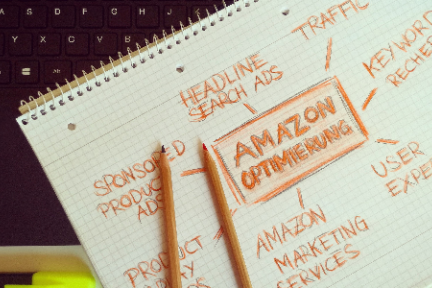 TRAFFIC
HEADLINE
SEARCH ADS
KEYWORD
RECHE
AMAZON
OPTIMIERUNG
SPONSORED
PRODUCT
ADS
USER
EXPE
AMAZON
MARKETING
SERVICES
PRODUCT
ADS